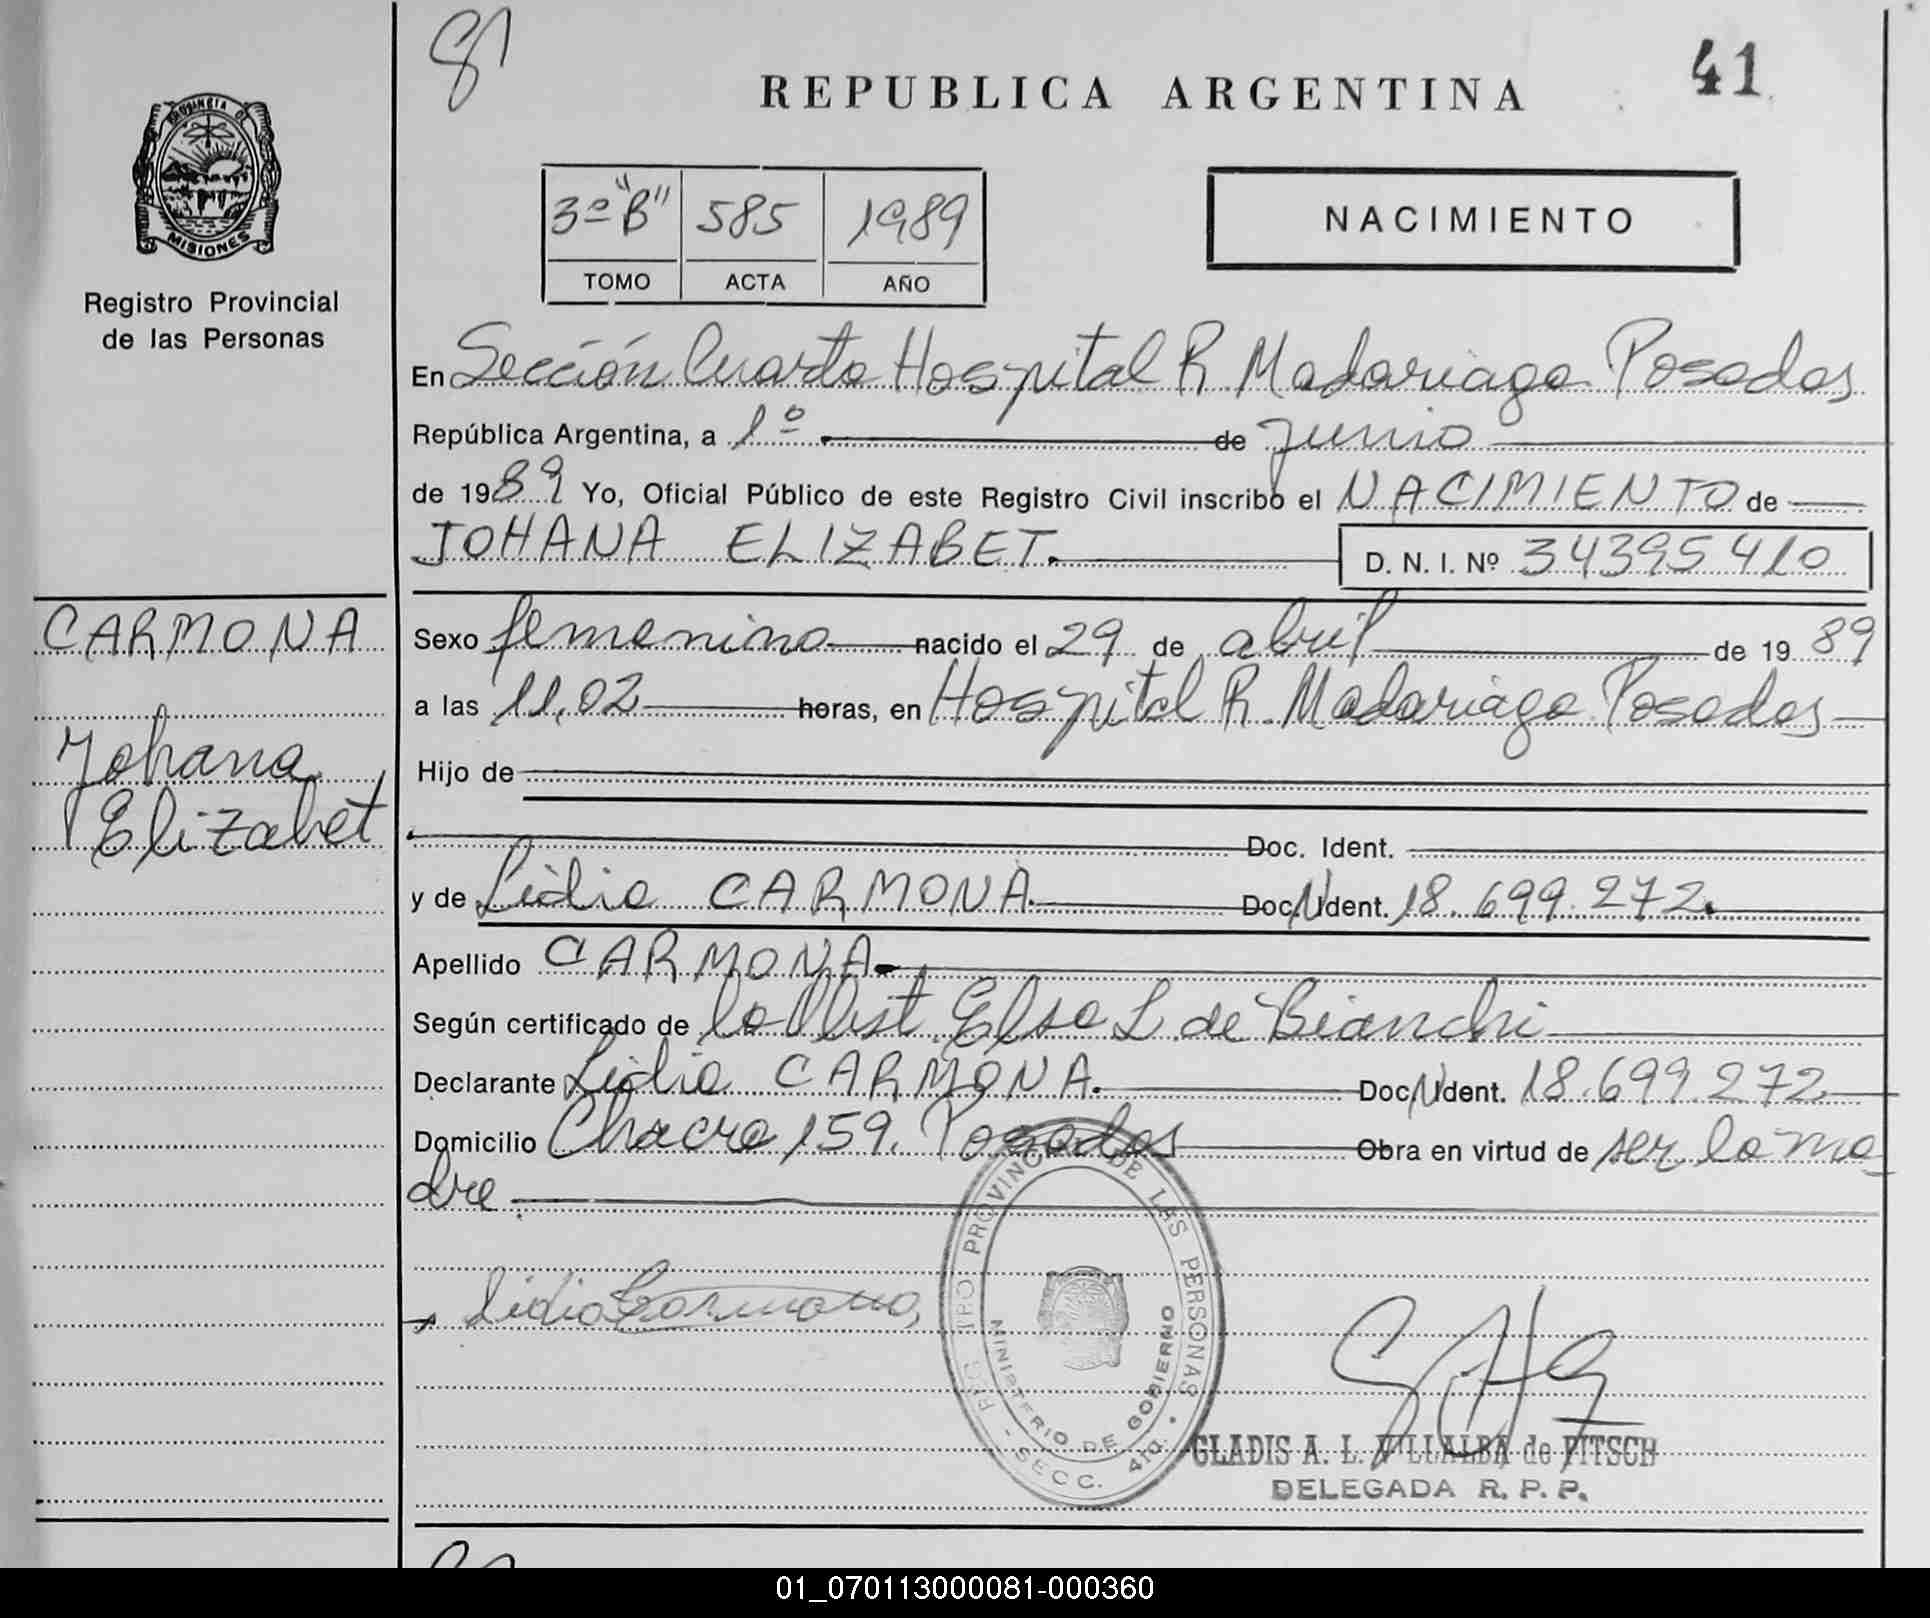 81
REPUBLICA ARGENTINA
41
PROVINCIA DE
MISIONES
Registro Provincial
de las Personas
3º "B" 585 1989
TOMO ACTA AÑO
NACIMIENTO
En Sección Cuarta Hospital R. Madariaga Posadas
República Argentina, a 1º de junio
de 1989 Yo, Oficial Público de este Registro Civil inscribo el NACIMIENTO de
JOHANA ELIZABET. D. N. I. Nº 34395410
CARMONA
Johana
Elizabet
Sexo femenino nacido el 29 de abril de 1989
a las 11,02 horas, en Hospital R. Madariaga Posadas
Hijo de
Doc. Ident.
y de Lidia CARMONA. Doc. N Ident. 18.699.272.
Apellido CARMONA
Según certificado de la Obst. Elsa L. de Bianchi
Declarante Lidia CARMONA. Doc. N Ident. 18.699.272
Domicilio Chacra 159. Posadas Obra en virtud de ser la ma
dre
Lidia Carmona
REGISTRO PROVINCIAL DE LAS PERSONAS
MINISTERIO DE GOBIERNO
- SECC. 4ta. -
GLADIS A. L. VILLALBA de PITSCH
DELEGADA R. P. P.
01_070113000081-000360